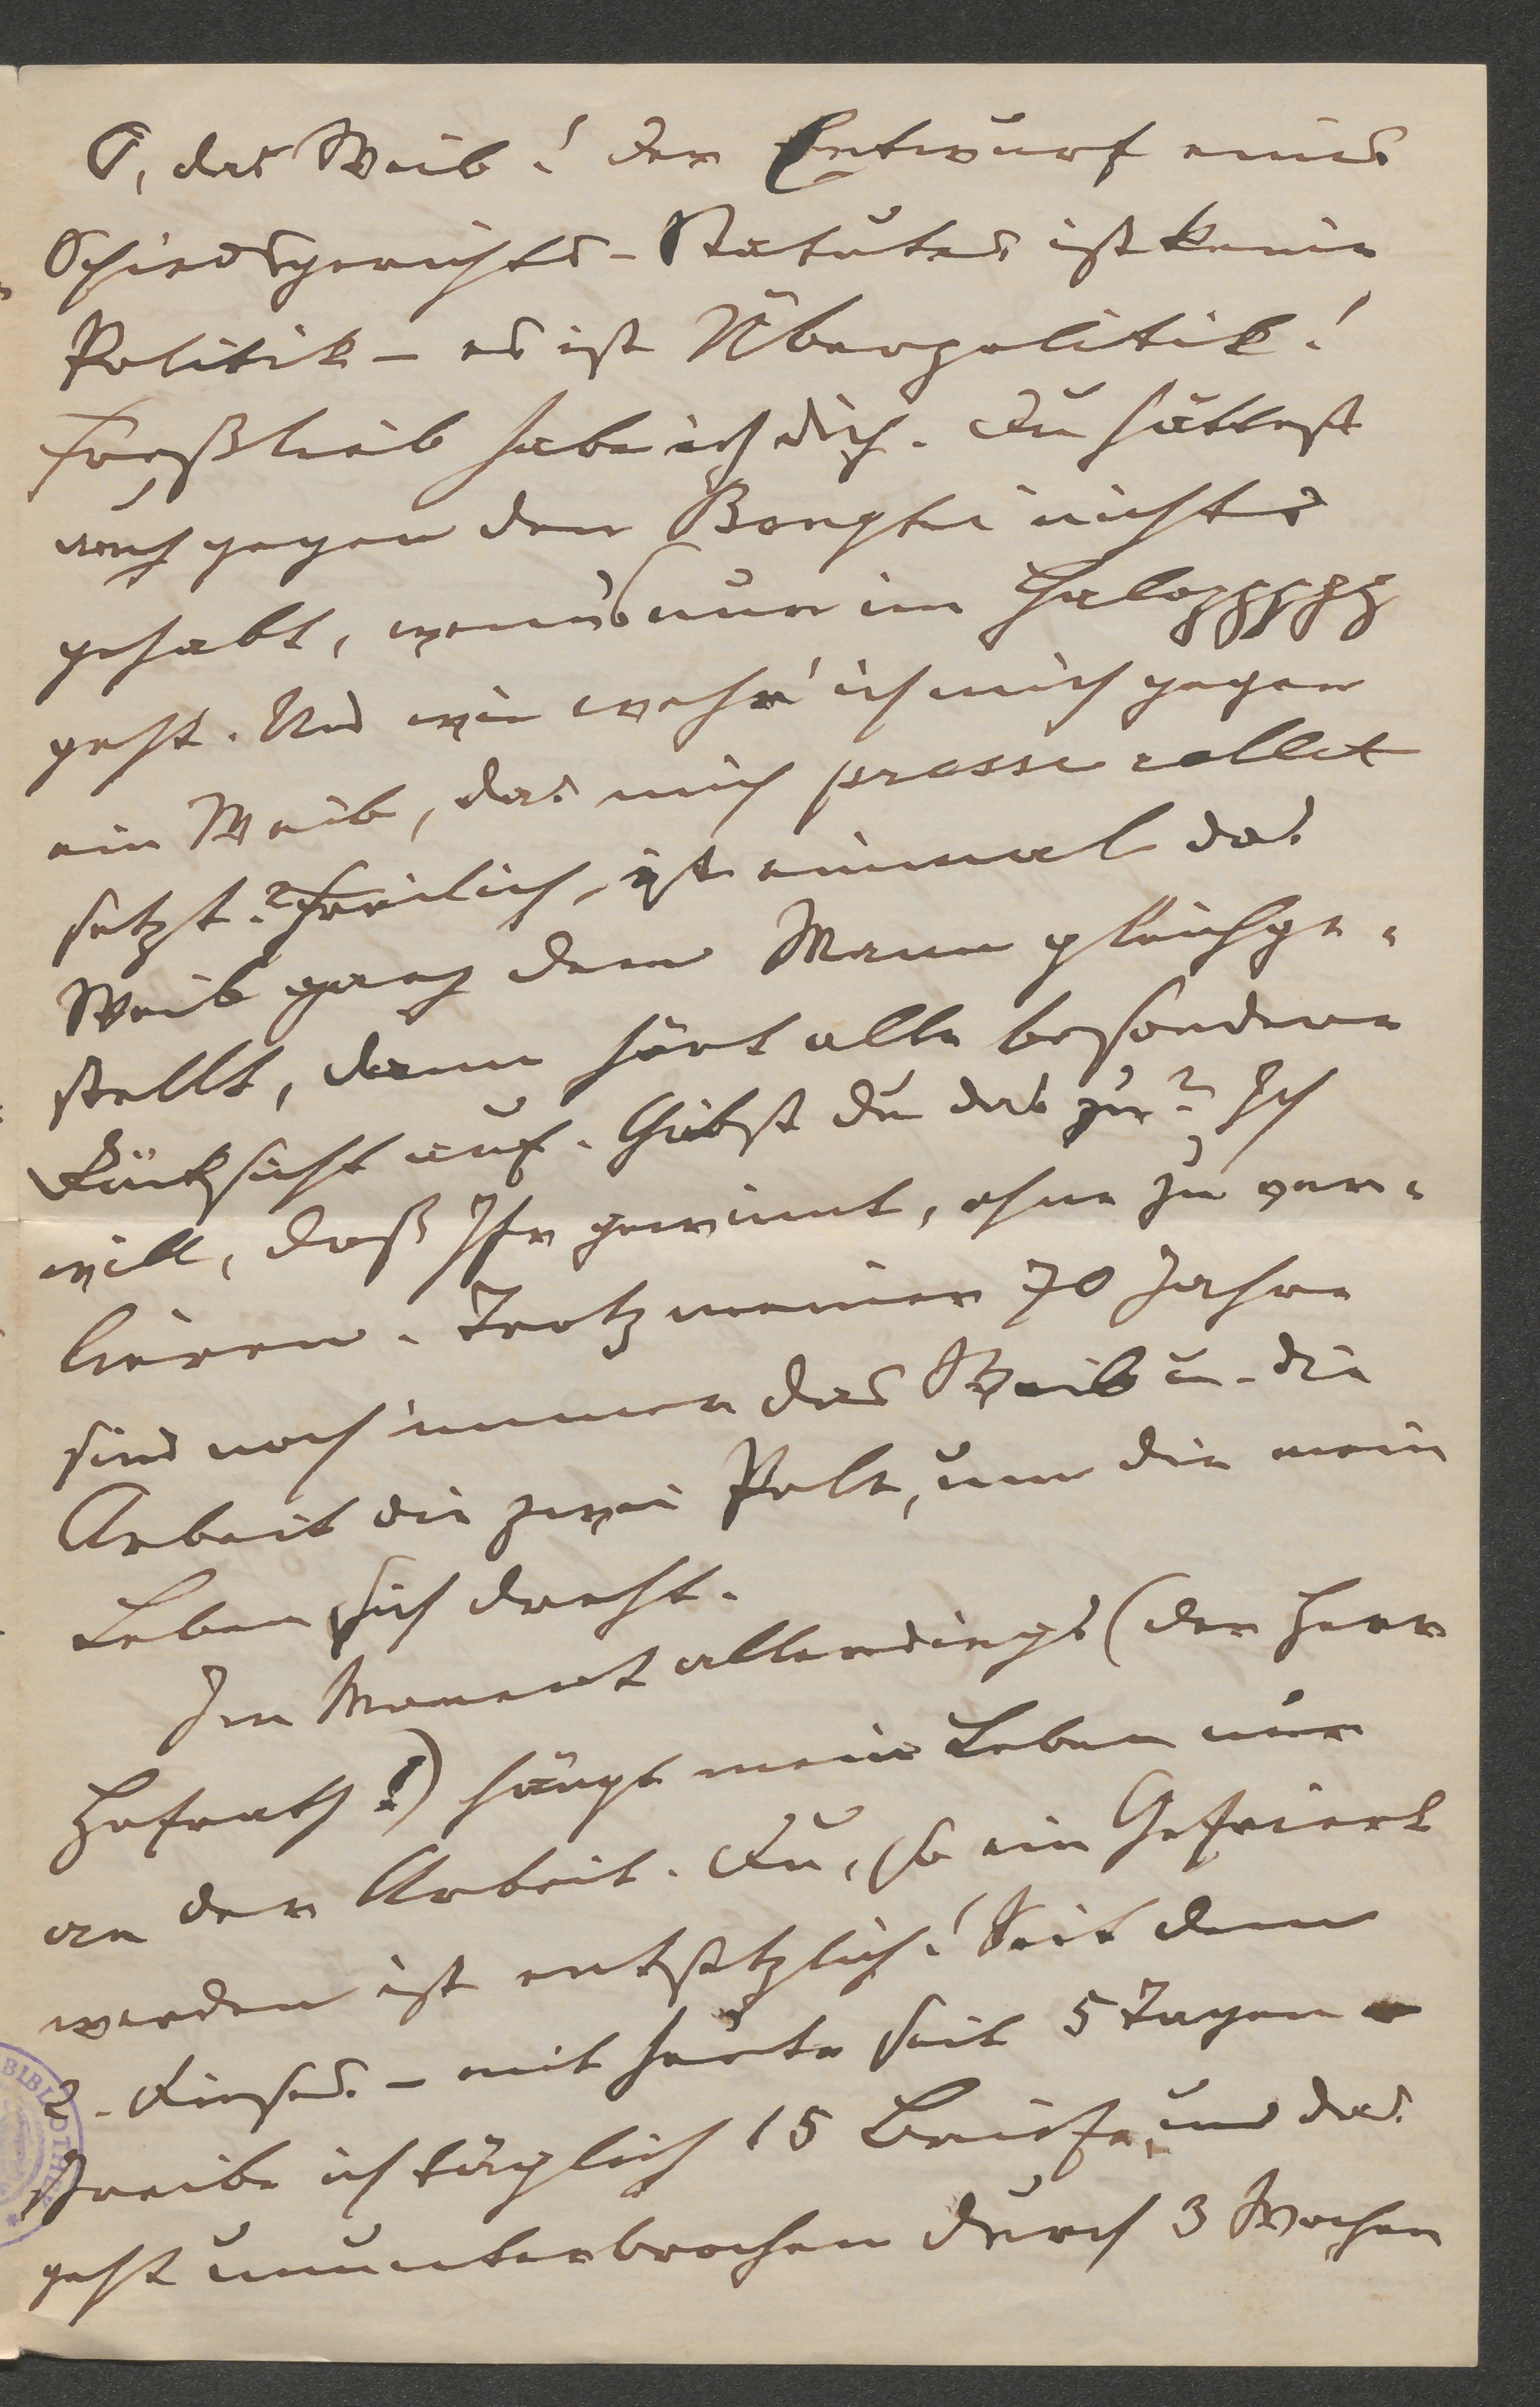 O, das Weib! der Entwurf eines
Schiedsgerichts-Statutes ist keine
Politik – es ist Überpolitik!
Freßlieb habe ich dich. Du hättest
auch gegen den Bonghi nichts
gehabt, wenns nur im Galopppppp
geht. Und wie wehr' ich mich gegen
ein Weib, das mich presse collet
setzt? Freilich, ist einmal das
Weib ganz dem Mann gleichge-
stellt, dann hört alle besondere
Rücksicht auf. Gibst du das zu? Ich
will, daß Ihr gewinnt, ohne zu ver-
lieren. Trotz meiner 70 Jahre
sind noch immer das Weib u. die
Arbeit die zwei Pole, um die mein
Leben sich dreht.
Im Moment allerdings (der Herr
Hofrath!) hängt mein Leben nur
an der Arbeit. Du, so ein Gefeiert
werden ist entsetzlich! Seit dem
2. dieses. – mit heute seit 5 Tagen –
schreibe ich täglich 15 Briefe, und das
geht ununterbrochen durch 3 Wochen
BIBLIOTHEK